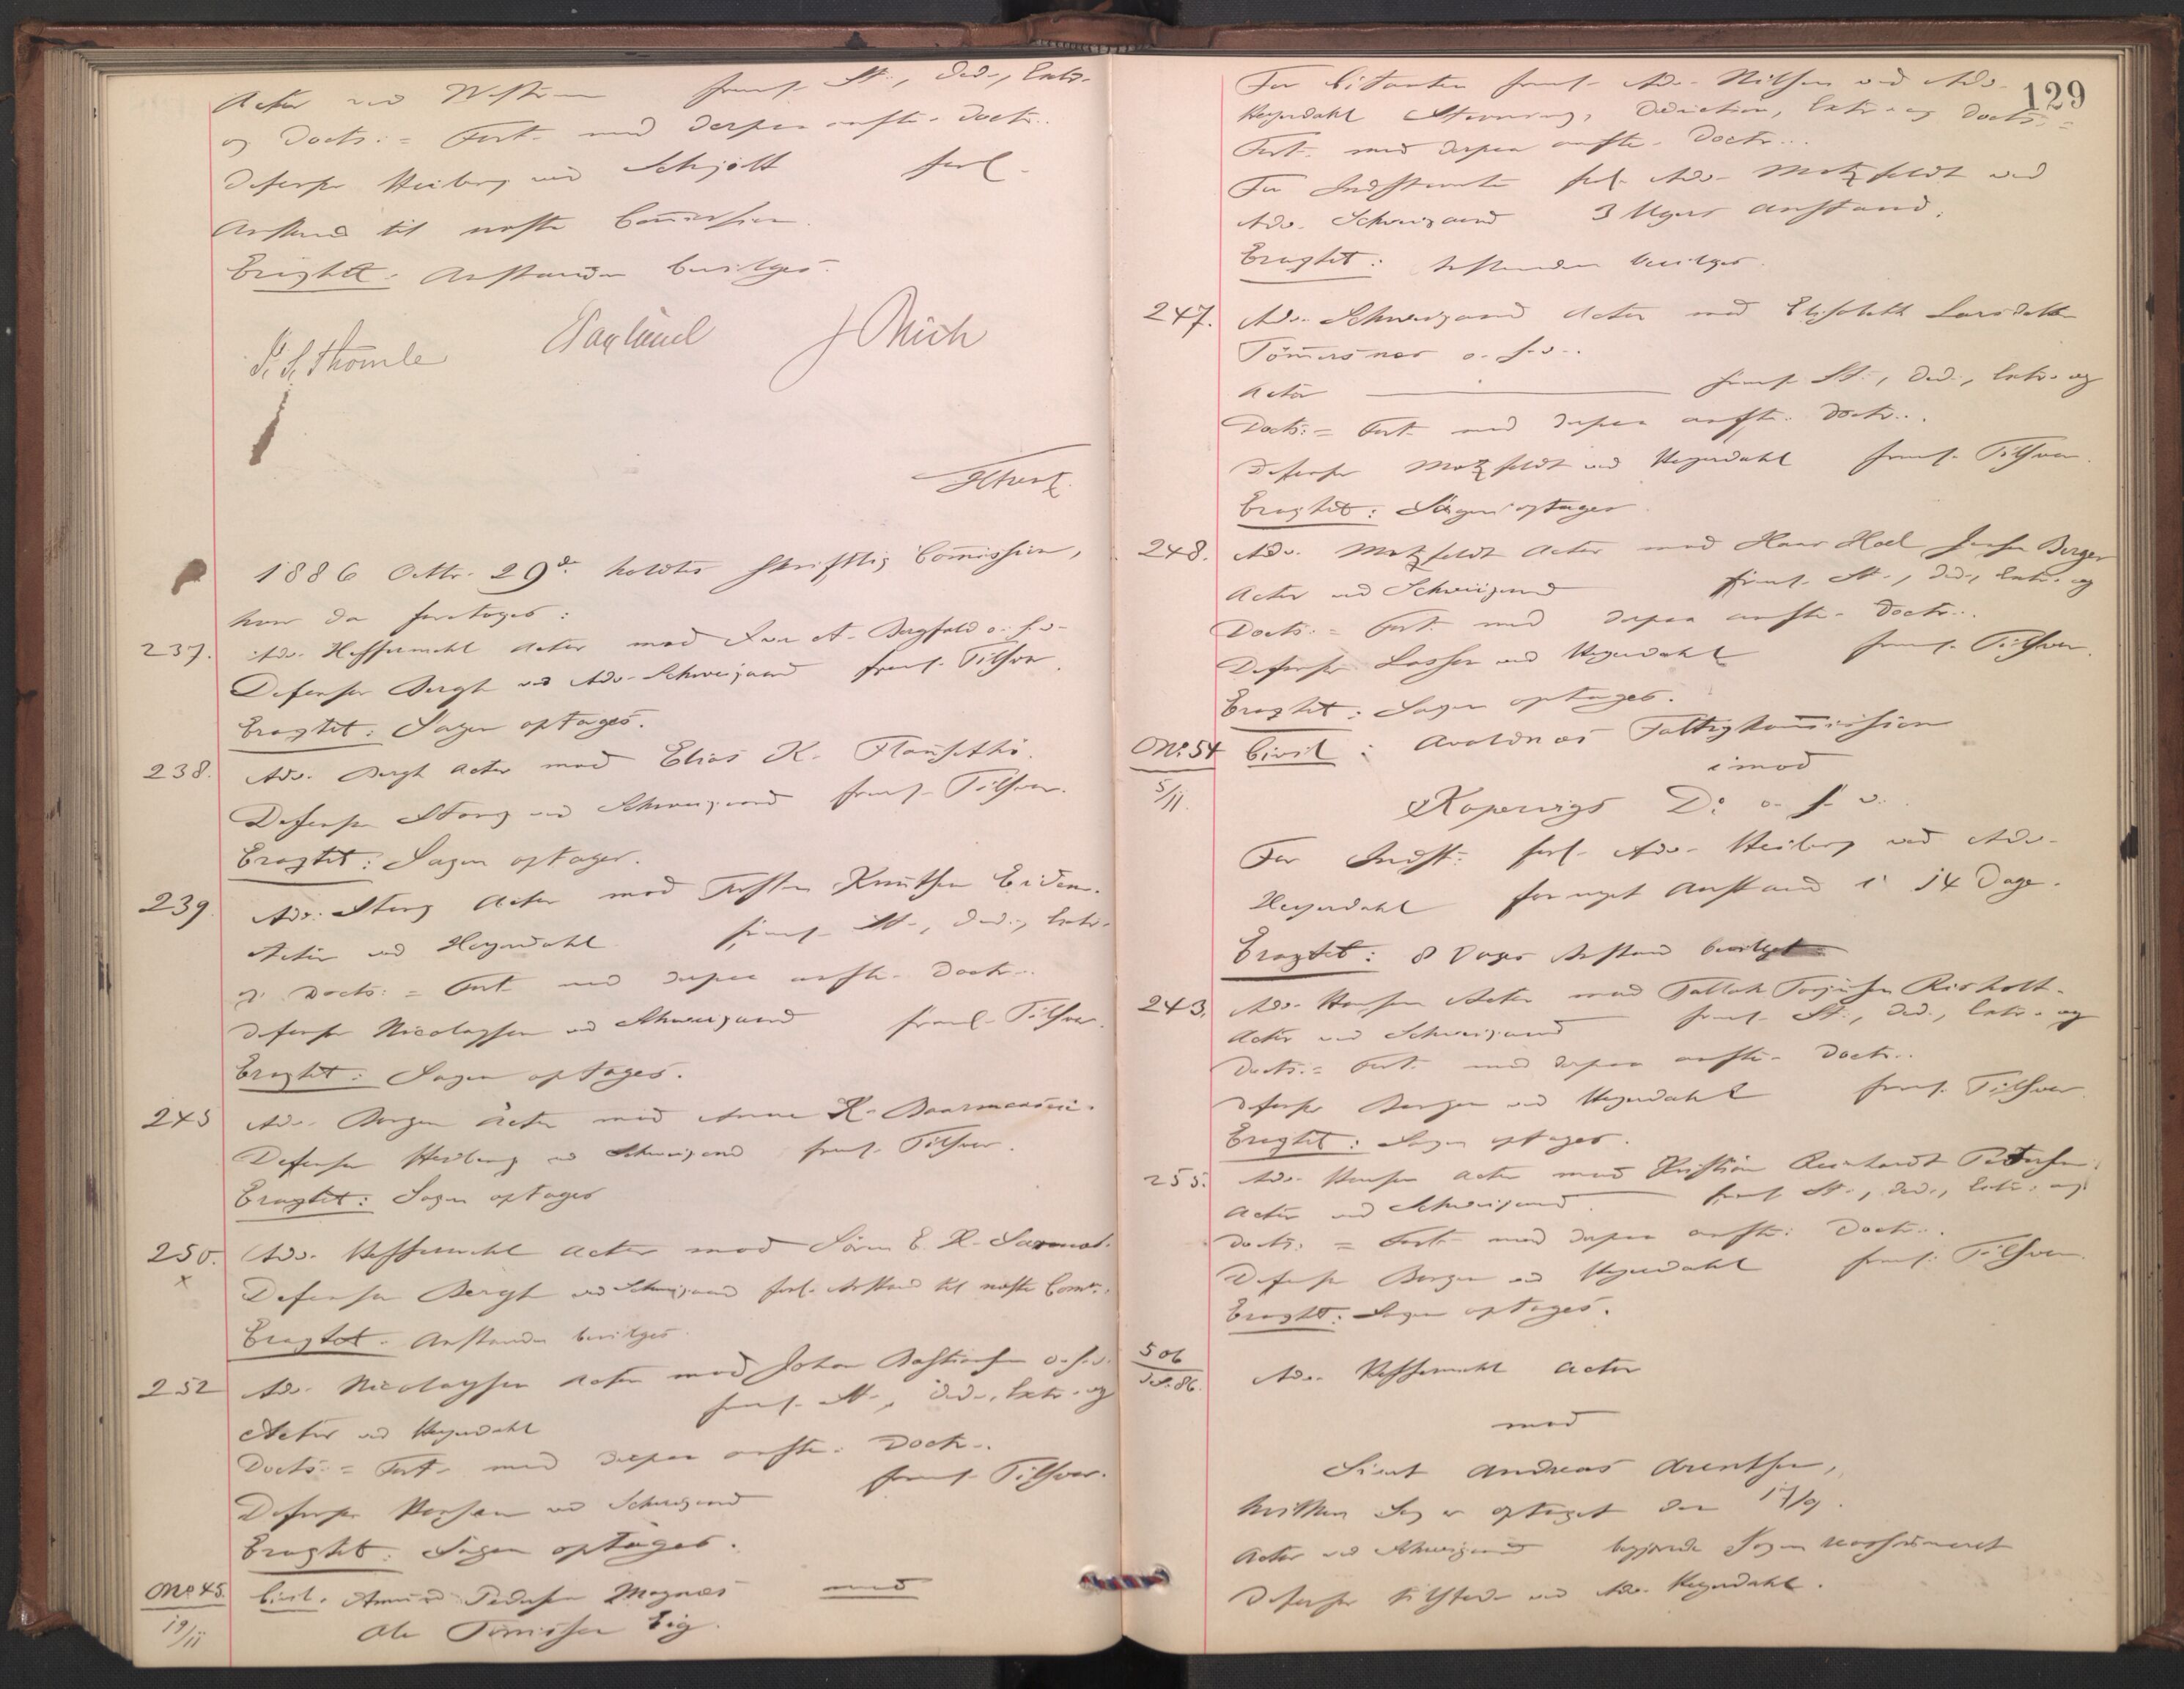 Actor ved fremf. St., Ded., Extr.
og Docts: = Fort. med derpaa anfte. Doctr..
Defensor Heiberg ved Schjött forl.
Anstand til næste Commission.
Eragtet. Anstanden bevilges.
Thomle J Mich
1886 Octbr. 29de holdtes skriftlig Commission,
hvor da foretoges:
237. Adv. Hesselmuhl Actor mod Iver A. Bergfald o.s.v.
Defensor Bergh ved Adv. Schweigaard fremf. Tilsvar.
Eragtet: Sagen optages.
238. Adv. Bergh Actor mod Elias K.
Defensor Stang ved Schweigaard fremf. Tilsvar.
Eragtet: Sagen optages.
239. Adv. Stang Actor mod Knutsen Eidem.
Actor ved Heyerdahl fremf. St., Ded., Extr.
og Docts: = Fort. med derpaa anfte. Doctr..
Defensor Nicolaysen ved Schweigaard fremf. Tilsvar.
Eragtet: Sagen optages.
245 Adv. Berger Actor mod Anne K.
Defensor Heiberg ved Schweigaard fremf. Tilsvar.
Eragtet: Sagen optages
250. Adv. Actor mod Sören E. R.
x
Defensor Bergh ved Schweigaard forl. Anstand til næste Comm.
Eragtet. Anstanden bevilges
252 Adv. Nicolaysen Actor mod Johan Bastiansen o.s.v.
Actor ved Heyerdahl fremf. St., Ded., Extr. og
Docts: = Fort. med derpaa anfte. Doctr..
Defensor Hansen ved Schweigaard fremf. Tilsvar.
Eragtet: Sagen optages.
No. 45. Civil. Amund Pedersen Mognæs mod
19/11 Ole Tönnesen Eig.
129
For Citanten fremf. Adv. Nilsen ved Adv.
Heyerdahl Stevning, Deduction, Extr. og Docts: =
Fort. med derpaa anfte. Doctr...
For Indstevnte forl. Adv. Motzfeldt ved
Adv. Schweigaard 3 Ugers Anstand.
Eragtet: Anstanden bevilges.
247. Adv. Schweigaard Actor mod Elisabeth Larsdatter
Tömmernes o.s.v..
Actor fremf. St., Ded., Extr. og
Docts: = Fort. med derpaa anfte. Doctr..
Defensor Motzfeldt ved Heyerdahl fremf. Tilsvar.
Eragtet: Sagen optages
248. Adv. Motzfeldt Actor mod Hans Hoel Jensen Berger
Actor ved Schweigaard fremf. St., Ded., Extr. og
Docts: = Fort. med derpaa anfte. Doctr...
Defensor Lasson ved Heyerdahl fremf. Tilsvar.
Eragtet: Sagen optages.
No. 54 Civil: Avaldnæs Fattigkommission
imod
5/11. Kopervigs Do o.s.v.
For Indst: forl. Adv. Heiberg ved Adv.
Heyerdahl fornyet Anstand i 14 Dage.
Eragtet: 8 Dages Anstand bevilget
243. Adv. Hansen Actor mod Tallak Torjusen Risholt.
Actor ved Schweigaard fremf. St., Ded., Extr. og
Docts: = Fort. med derpaa anfte. Doctr..
Defensor Berger ved Heyerdahl fremf. Tilsvar.
Eragtet: Sagen optages.
255. Adv. Hansen Actor mod Kristian Reinhardt Pedersen
Actor ved Schweigaard fremf. St., Ded., Extr. og
Docts: = Fort. med derpaa anfte: Doctr..
Defensor Berger ved Heyerdahl fremf. Tilsvar.
Eragtet: Sagen optages.
506 Adv. Actor
mod
Andreas Arentsen,
hvilken Sag er optaget den 17/9.
Actor ved Schweigaard begjærede Sagen reassumeret
Defensor tilstede ved Adv. Heyerdahl.